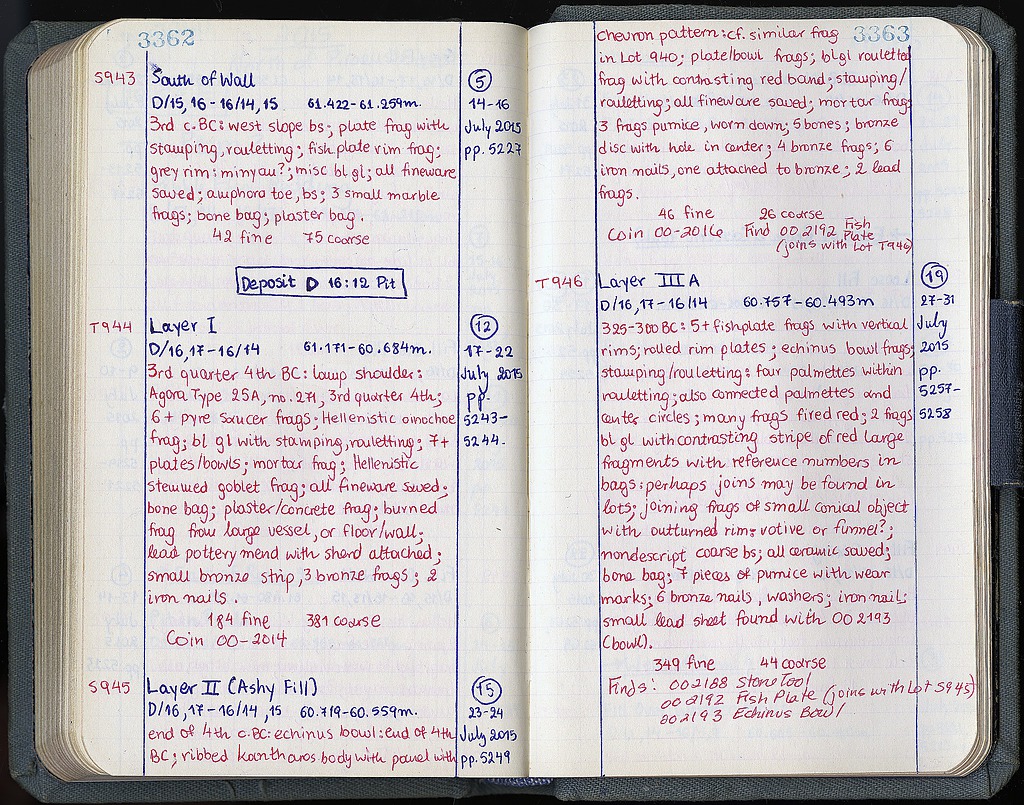 3362
S943
South of Wall
5
D/15, 16-16/14, 15 61.422-61.259m.
14-16
3rd c.BC: west slope bs; plate frag with
July 2015
stamping, rouletting; fish plate rim frag;
pp. 5227
grey rim: minyau?; misc bl gl; all fineware
saved; amphora toe, bs; 3 small marble
frags; bone bag; plaster bag.
42 fine 75 coarse
Deposit D 16:12 Pit
T944
Layer I
12
D/16,17-16/14 61.171-60.684m.
17-22
3rd quarter 4th BC: lamp shoulder:
July 2015
Agora Type 25A, no. 271, 3rd quarter 4th;
pp.
6+ pyre saucer frags; Hellenistic oinochoe
5243-
frag; bl gl with stamping, rouletting; 7+
5244.
plates/bowls; mortar frag; Hellenistic
stemmed goblet frag; all fineware saved;
bone bag; plaster/concrete frag; burned
frag from large vessel, or floor/wall;
lead pottery mend with sherd attached;
small bronze strip, 3 bronze frags; 2
iron nails.
184 fine 381 coarse
Coin 00-2014
S945
Layer II (Ashy Fill)
15
D/16,17-16/14,15 60.719-60.559m.
23-24
end of 4th c.BC: echinus bowl: end of 4th
July 2015
BC; ribbed kantharos body with panel with
pp. 5249
3363
chevron pattern: cf. similar frag
in Lot 940; plate/bowl frags; bl gl rouletted
frag with contrasting red band; stamping/
rouletting; all fineware saved; mortar frag;
3 frags pumice, worn down; 5 bones; bronze
disc with hole in center; 4 bronze frags; 6
iron nails, one attached to bronze; 2 lead
frags.
46 fine 26 coarse
Coin 00-2016 Find 002192 Fish
Plate
(joins with Lot T946)
T946
Layer III A
19
D/16,17-16/14 60.757-60.493m
27-31
325-300 BC: 5+ fishplate frags with vertical
July
rims; rolled rim plates; echinus bowl frags;
2015
stamping/rouletting: four palmettes within
pp.
rouletting; also connected palmettes and
5257-
center circles; many frags fired red; 2 frags
5258
bl gl with contrasting stripe of red large
fragments with reference numbers in
bags: perhaps joins may be found in
lots; joining frags of small conical object
with outturned rim: votive or funnel?;
nondescript coarse bs; all ceramic saved;
bone bag; 7 pieces of pumice with wear
marks; 6 bronze nails, washers; iron nail;
small lead sheet found with 002193
(bowl).
349 fine 44 coarse
Finds: 002188 Stone Tool
002192 Fish Plate (joins with Lot S945)
002193 Echinus Bowl